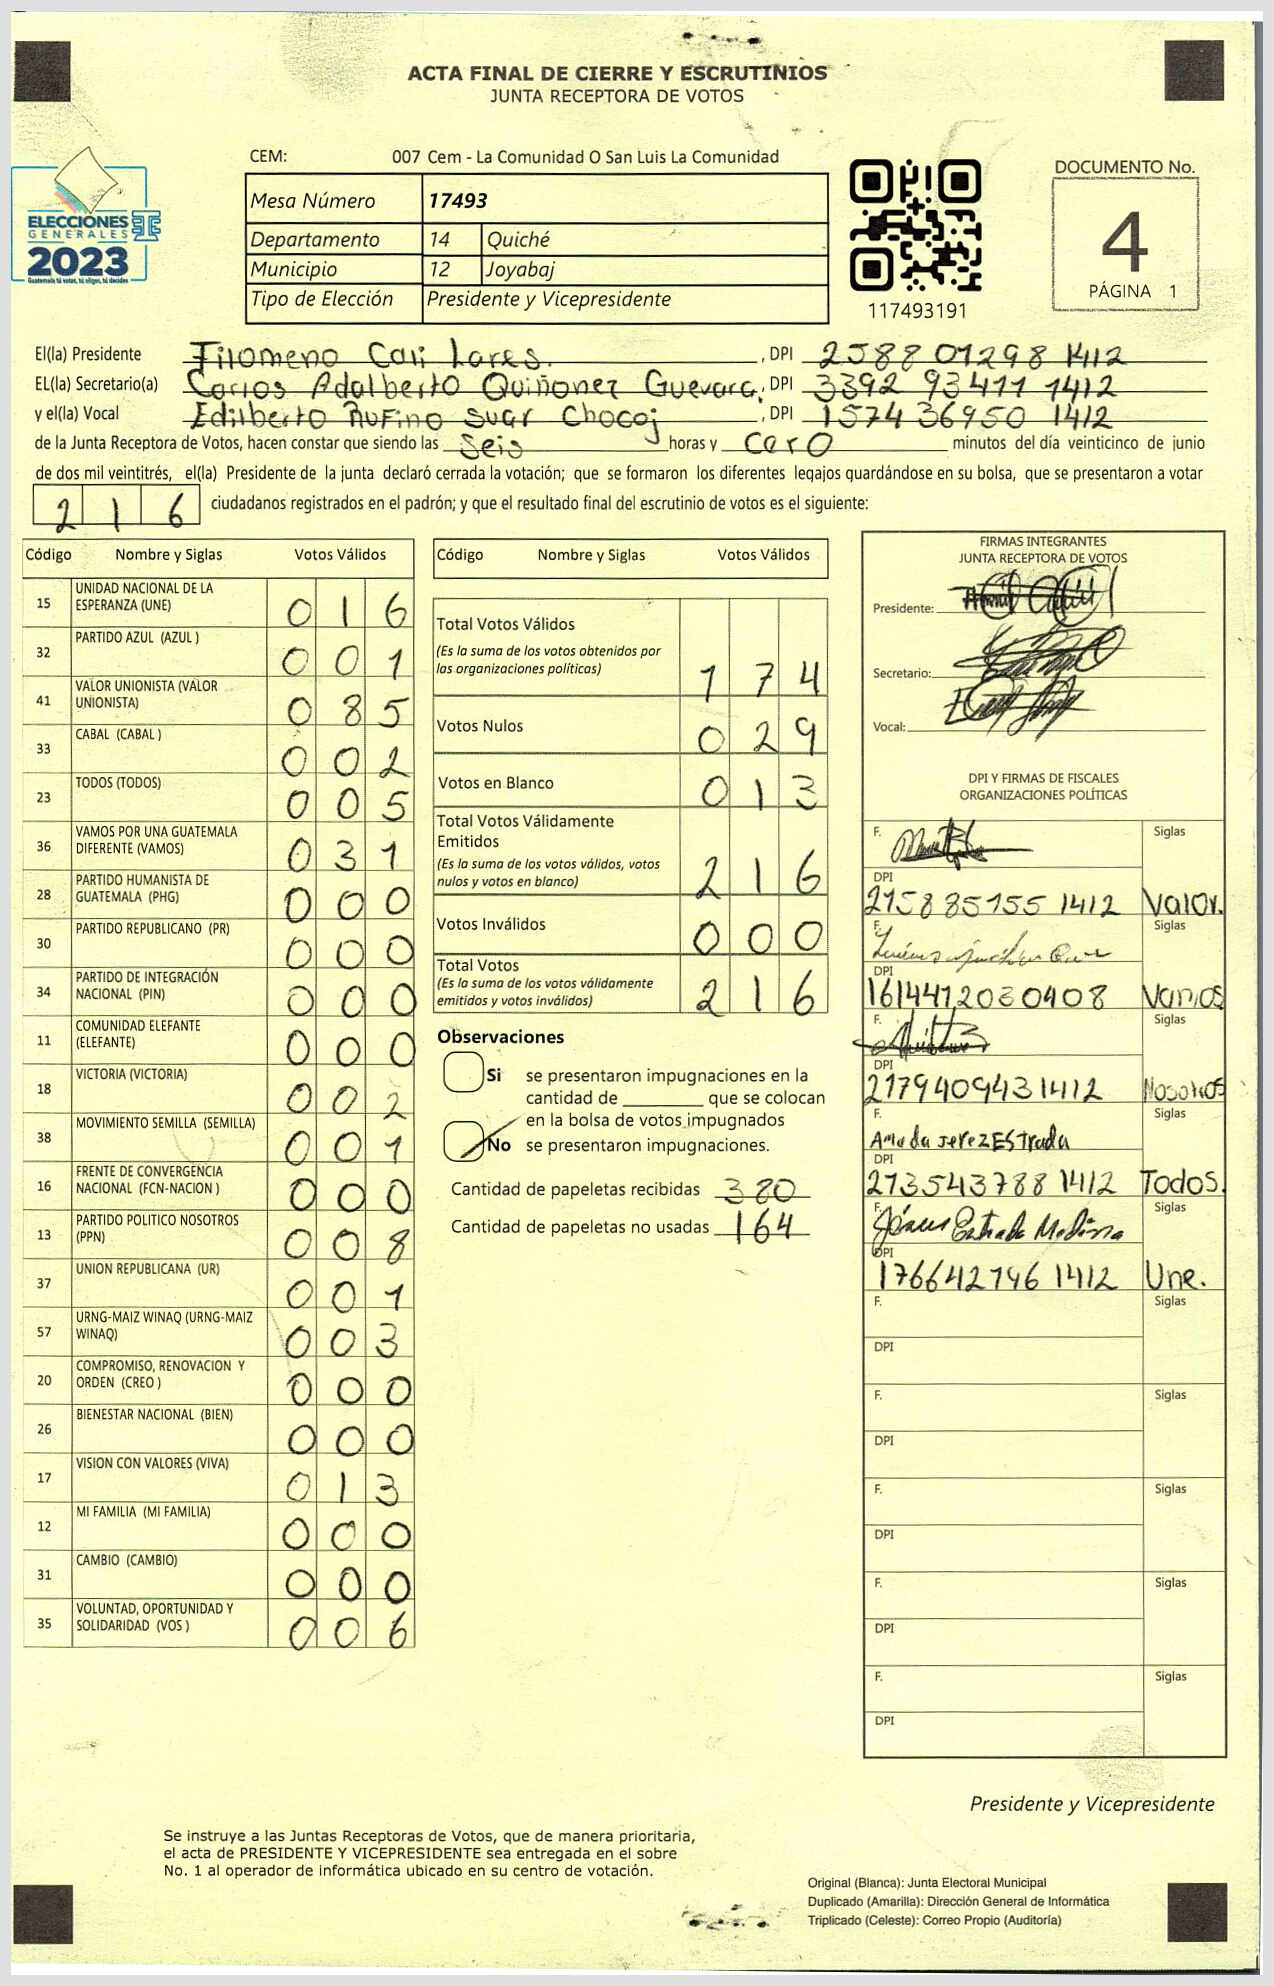 ACTA FINAL DE CIERRE Y ESCRUTINIOS
JUNTA RECEPTORA DE VOTOS
CEM: 007 Cem - La Comunidad O San Luis La Comunidad
ELECCIONES
GENERALES
2023
Guatemala tú votas, tú eliges, tú decides
Mesa Número 17493
Departamento 14 Quiché
Municipio 12 Joyabaj
Tipo de Elección Presidente y Vicepresidente
117493191
DOCUMENTO No.
4
PÁGINA 1
El(la) Presidente Filomeno Cali Lares. , DPI 2588 01298 1412
EL(la) Secretario(a) Carlos Adalberto Quiñonez Guevara, DPI 3392 93411 1412
y el(la) Vocal Edilberto Rufino Suar Chocoj , DPI 1574 36950 1412
de la Junta Receptora de Votos, hacen constar que siendo las Seis horas y cero minutos del día veinticinco de junio
de dos mil veintitrés, el(la) Presidente de la junta declaró cerrada la votación; que se formaron los diferentes legajos guardándose en su bolsa, que se presentaron a votar
216 ciudadanos registrados en el padrón; y que el resultado final del escrutinio de votos es el siguiente:
Código Nombre y Siglas Votos Válidos
15 UNIDAD NACIONAL DE LA ESPERANZA (UNE) 016
32 PARTIDO AZUL (AZUL ) 001
41 VALOR UNIONISTA (VALOR UNIONISTA) 085
33 CABAL (CABAL ) 002
23 TODOS (TODOS) 005
36 VAMOS POR UNA GUATEMALA DIFERENTE (VAMOS) 031
28 PARTIDO HUMANISTA DE GUATEMALA (PHG) 000
30 PARTIDO REPUBLICANO (PR) 000
34 PARTIDO DE INTEGRACIÓN NACIONAL (PIN) 000
11 COMUNIDAD ELEFANTE (ELEFANTE) 000
18 VICTORIA (VICTORIA) 002
38 MOVIMIENTO SEMILLA (SEMILLA) 001
16 FRENTE DE CONVERGENCIA NACIONAL (FCN-NACION ) 000
13 PARTIDO POLITICO NOSOTROS (PPN) 008
37 UNION REPUBLICANA (UR) 001
57 URNG-MAIZ WINAQ (URNG-MAIZ WINAQ) 003
20 COMPROMISO, RENOVACION Y ORDEN (CREO ) 000
26 BIENESTAR NACIONAL (BIEN) 000
17 VISION CON VALORES (VIVA) 013
12 MI FAMILIA (MI FAMILIA) 000
31 CAMBIO (CAMBIO) 000
35 VOLUNTAD, OPORTUNIDAD Y SOLIDARIDAD (VOS ) 006
Código Nombre y Siglas Votos Válidos
Total Votos Válidos
(Es la suma de los votos obtenidos por las organizaciones políticas) 174
Votos Nulos 029
Votos en Blanco 013
Total Votos Válidamente Emitidos
(Es la suma de los votos válidos, votos nulos y votos en blanco) 216
Votos Inválidos 000
Total Votos
(Es la suma de los votos válidamente emitidos y votos inválidos) 216
Observaciones
Si se presentaron impugnaciones en la
cantidad de ________ que se colocan
en la bolsa de votos impugnados
No se presentaron impugnaciones.
Cantidad de papeletas recibidas 380
Cantidad de papeletas no usadas 164
FIRMAS INTEGRANTES
JUNTA RECEPTORA DE VOTOS
Presidente:
Secretario:
Vocal:
DPI Y FIRMAS DE FISCALES
ORGANIZACIONES POLÍTICAS
F. Siglas
DPI
2158 85155 1412 Valor.
F. Siglas
DPI
1614412030408 Vamos
F. Siglas
DPI
2179409431412 Nosotros
F. Siglas
Amada Jerez EStrada
DPI
213543788 1412 Todos.
F. Siglas
Estrada Medina
DPI
176642746 1412 Une.
F. Siglas
DPI
F. Siglas
DPI
F. Siglas
DPI
F. Siglas
DPI
F. Siglas
DPI
Presidente y Vicepresidente
Se instruye a las Juntas Receptoras de Votos, que de manera prioritaria,
el acta de PRESIDENTE Y VICEPRESIDENTE sea entregada en el sobre
No. 1 al operador de informática ubicado en su centro de votación.
Original (Blanca): Junta Electoral Municipal
Duplicado (Amarilla): Dirección General de Informática
Triplicado (Celeste): Correo Propio (Auditoría)